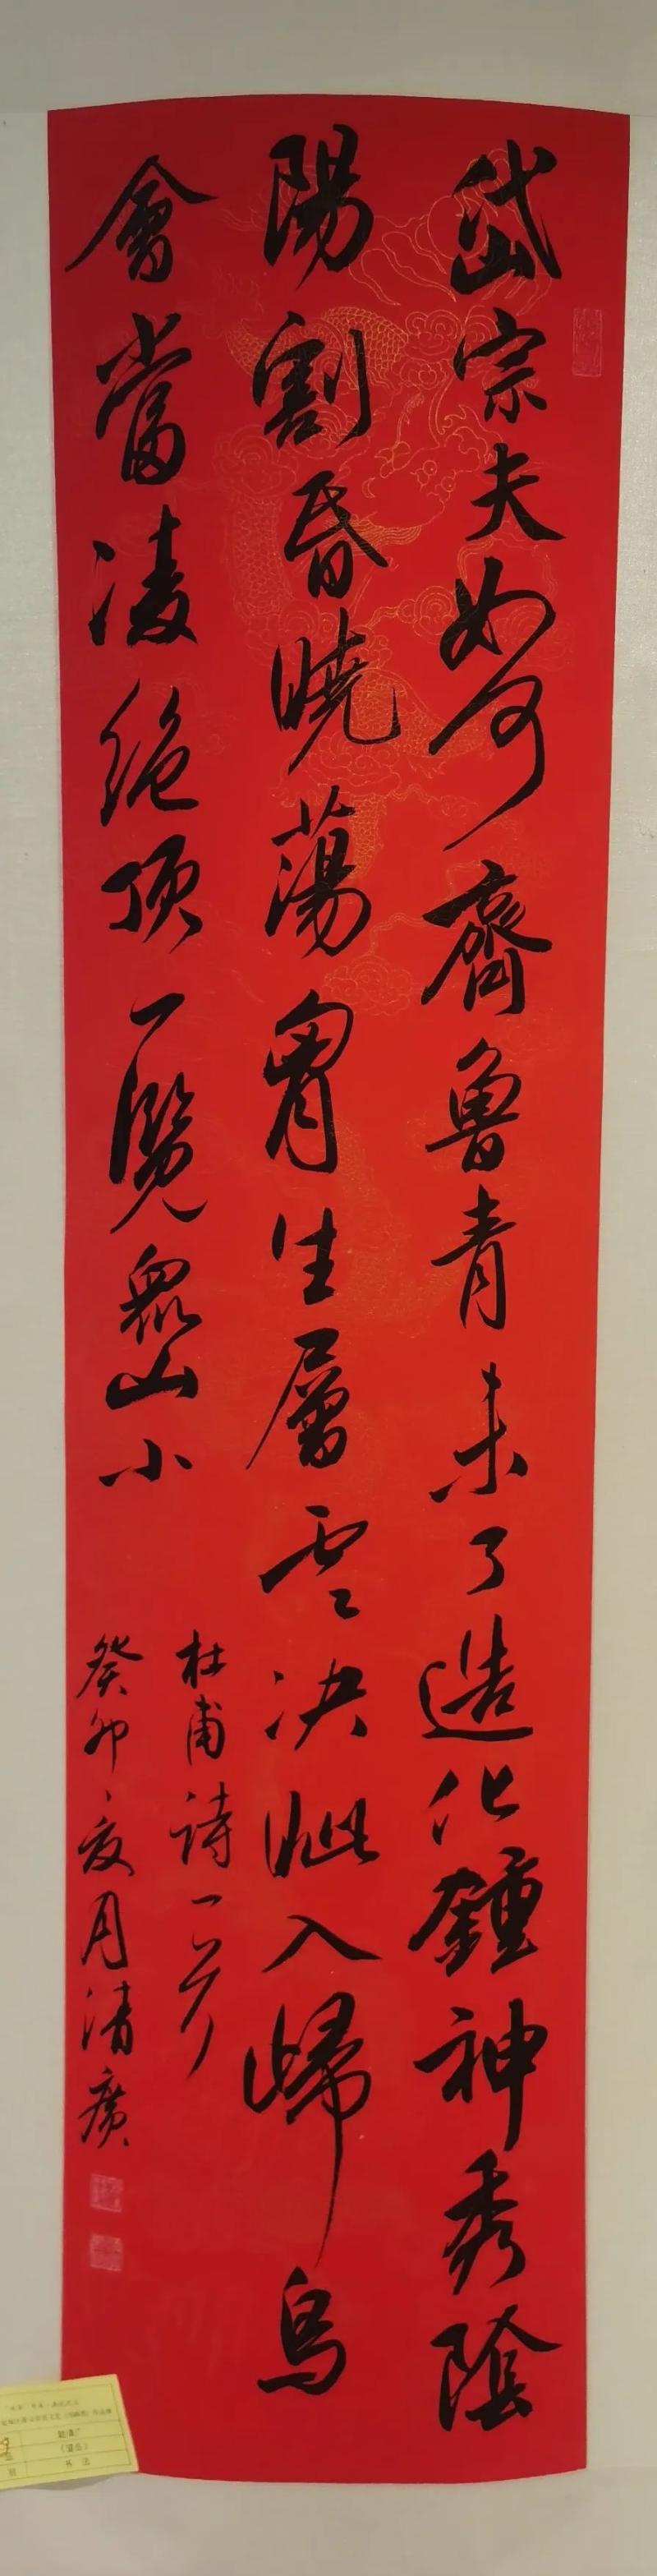 岱宗夫如何齊魯青未了造化鍾神秀陰
陽割昏曉蕩胷生層雲决眦入歸鳥
會當凌绝頂一覧衆山小
杜甫诗一首
癸卯夏月清廣
书法